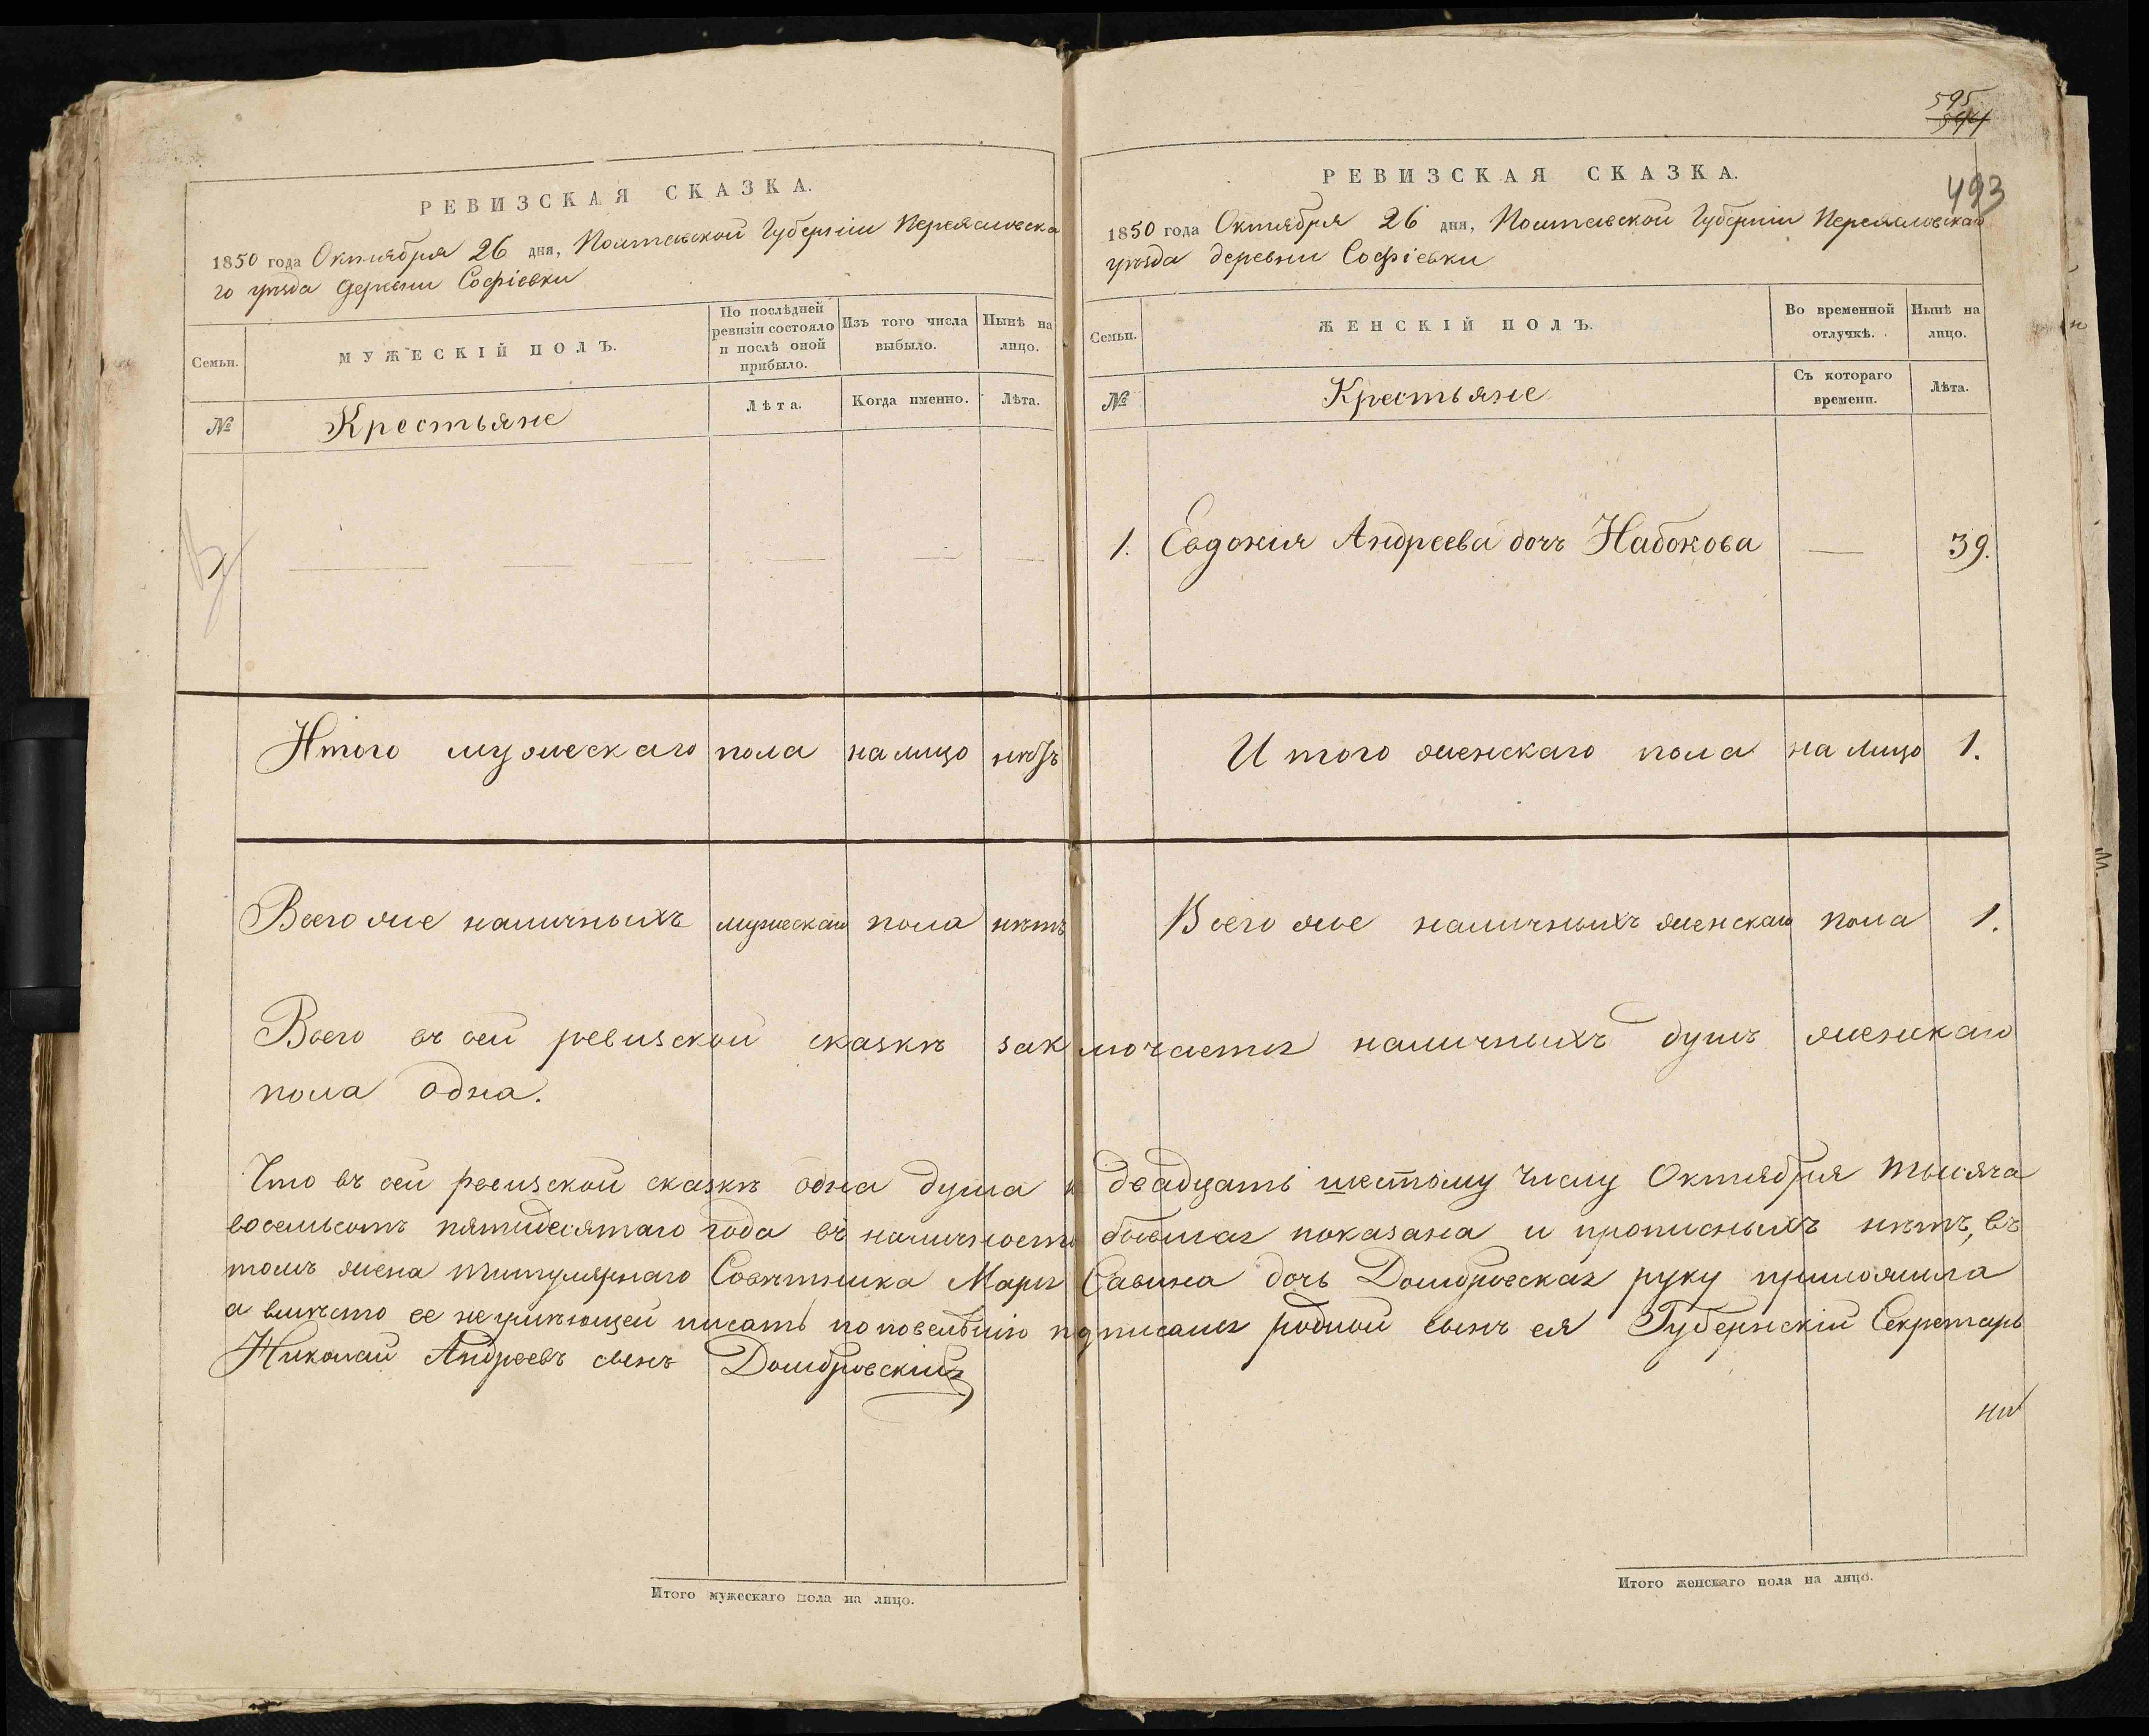 РЕВИЗСКАЯ СКАЗКА.
1850 года Октября 26 дня, Полтавской Губерніи Переяславска
го уѣзда деревни Софіевки
Семьи.
МУЖЕСКІЙ ПОЛЪ.
По послѣдней ревизіи состояло и послѣ оной прибыло.
Изъ того числа выбыло.
Нынѣ на лицо.
№
Крестьяне
Лѣта.
Когда именно.
Лѣта.
Итого мужескаго пола на лицо нѣтъ
Всего же наличныхъ мужескаго пола нѣтъ
595
594
493
РЕВИЗСКАЯ СКАЗКА.
1850 года Октября 26 дня, Полтавской Губерніи Переяславскаго
уѣзда деревни Софіевки
Семьи.
ЖЕНСКІЙ ПОЛЪ.
Во временной отлучкѣ.
Нынѣ на лицо.
№
Крестьяне
Съ котораго времени.
Лѣта.
1. Евдокия Андреева дочь Набокова — 39.
Итого женскаго пола на лицо 1.
Всего же наличныхъ женскаго пола 1.
Всего въ сей ревизской сказкѣ заключается наличныхъ душъ женскаго
пола одна.
Что въ сей ревизской сказкѣ одна душа к двадцать шестому числу Октября тысяча
восемьсотъ пятидесятаго года въ наличности бывшая показана и прописныхъ нѣтъ, въ
томъ жена титулярнаго Совѣтника Марья Савина дочь Домбровская руку приложила
а вмѣсто ее неумѣющей писать по повелѣнію подписалъ родной сынъ ея Губернскій Секретарь
Николай Андреевъ сынъ Домбровскій
Итого мужескаго пола на лицо.
Итого женскаго пола на лицо.